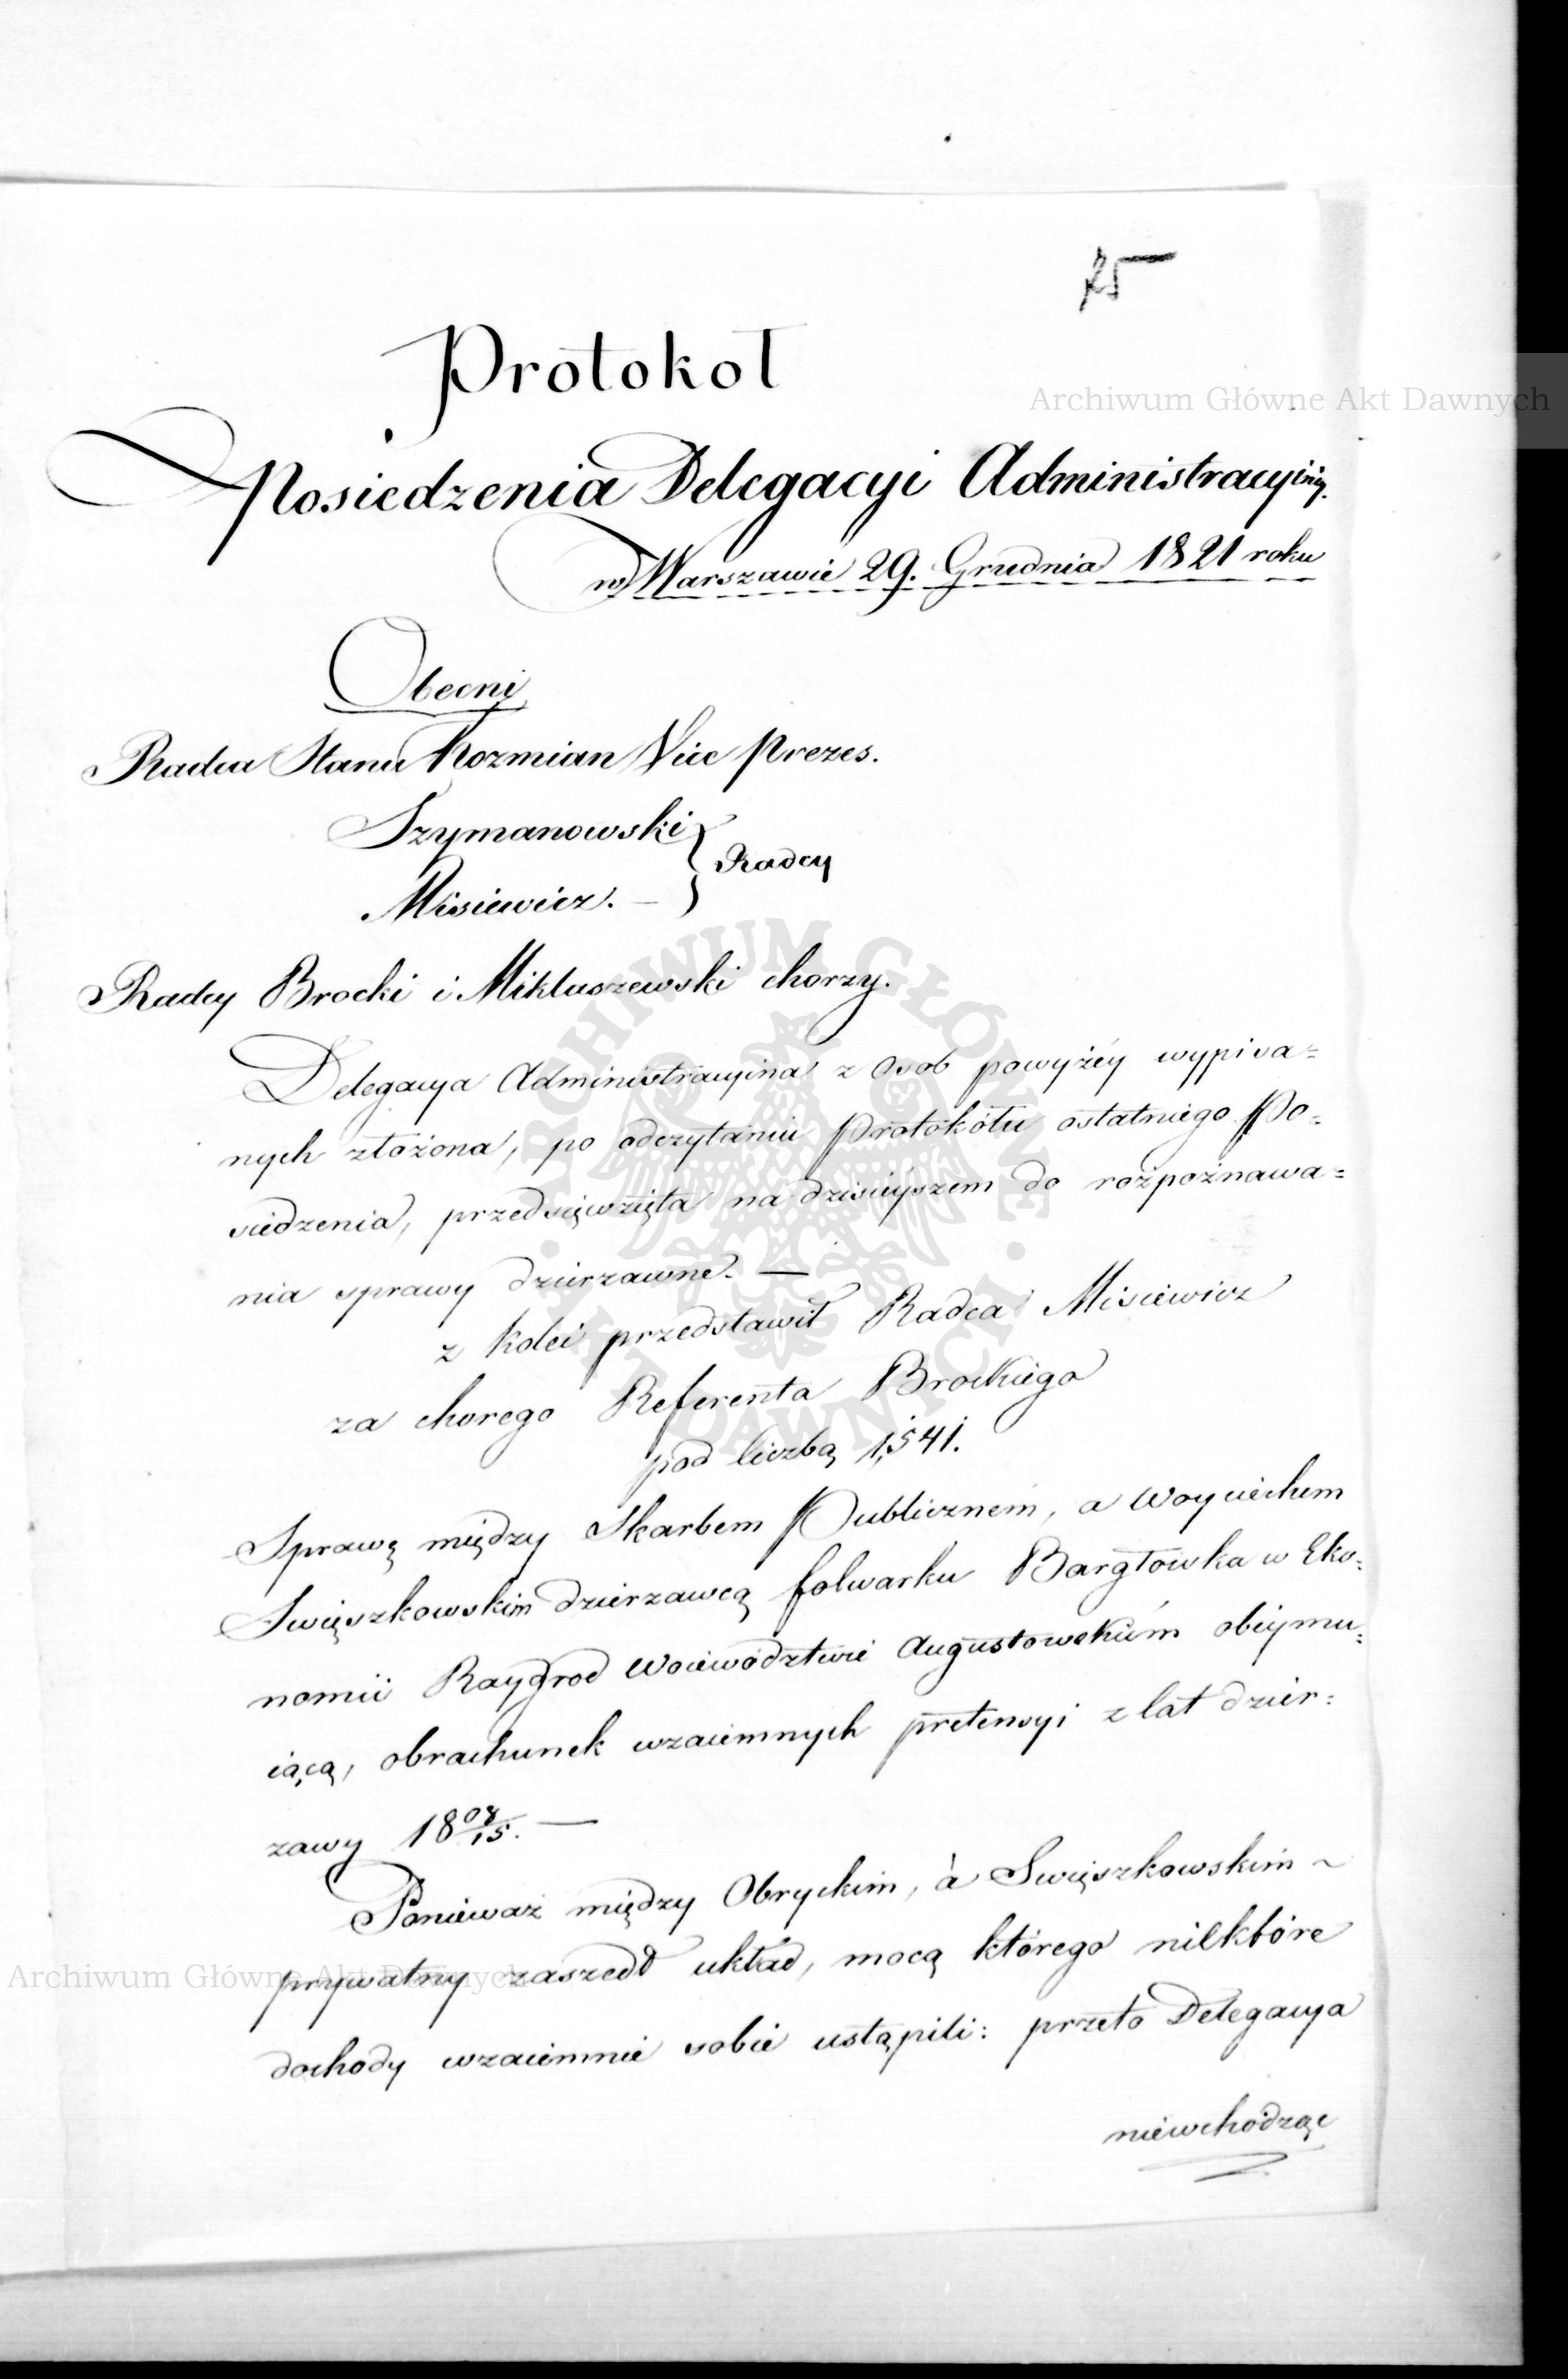 75
Protokoł
Posiedzenia Delegacyi Administracyiney.
w Warszawie 29. Grudnia 1821 roku
Obecni
Radca Stanu Kozmian Vice Prezes.
Szymanowski
Radcy
Misiewicz. —
Radcy Brocki i Mikluszewski chorzy.
Delegacya Administracyina z osob powyżéy wypisa=
nych złożona, po odczytaniu Protokółu ostatniego Po=
siedzenia, przedsięwzięła na dzisieyszem do rozpoznawa=
nia sprawy dzierzawne. —
z kolei przedstawił Radca Misiewicz
za chorego Referenta Brockiego
pod liczbą 1,541.
Sprawę między Skarbem Publicznem, a Woyciechem
Swięszkowskim dzierzawcą folwarku Bargłowka w Eko=
nomii Raygrod Woiewództwie Augustowskiém obéymu=
iącą, obrachunek wzaiemnych pretensyi z lat dzier=
zawy 18 08/15. —
Ponieważ między Obryckim, à Swięszkowskim ~
prywatny zaszedł układ, mocą którego niektóre
dochody wzaiemnie sobie ustąpili: przeto Delegacya
niewchodząc
Archiwum Główne Akt Dawnych
ARCHIWUM GŁÓWNE · AKT DAWNYCH ·
Archiwum Główne Akt Dawnych